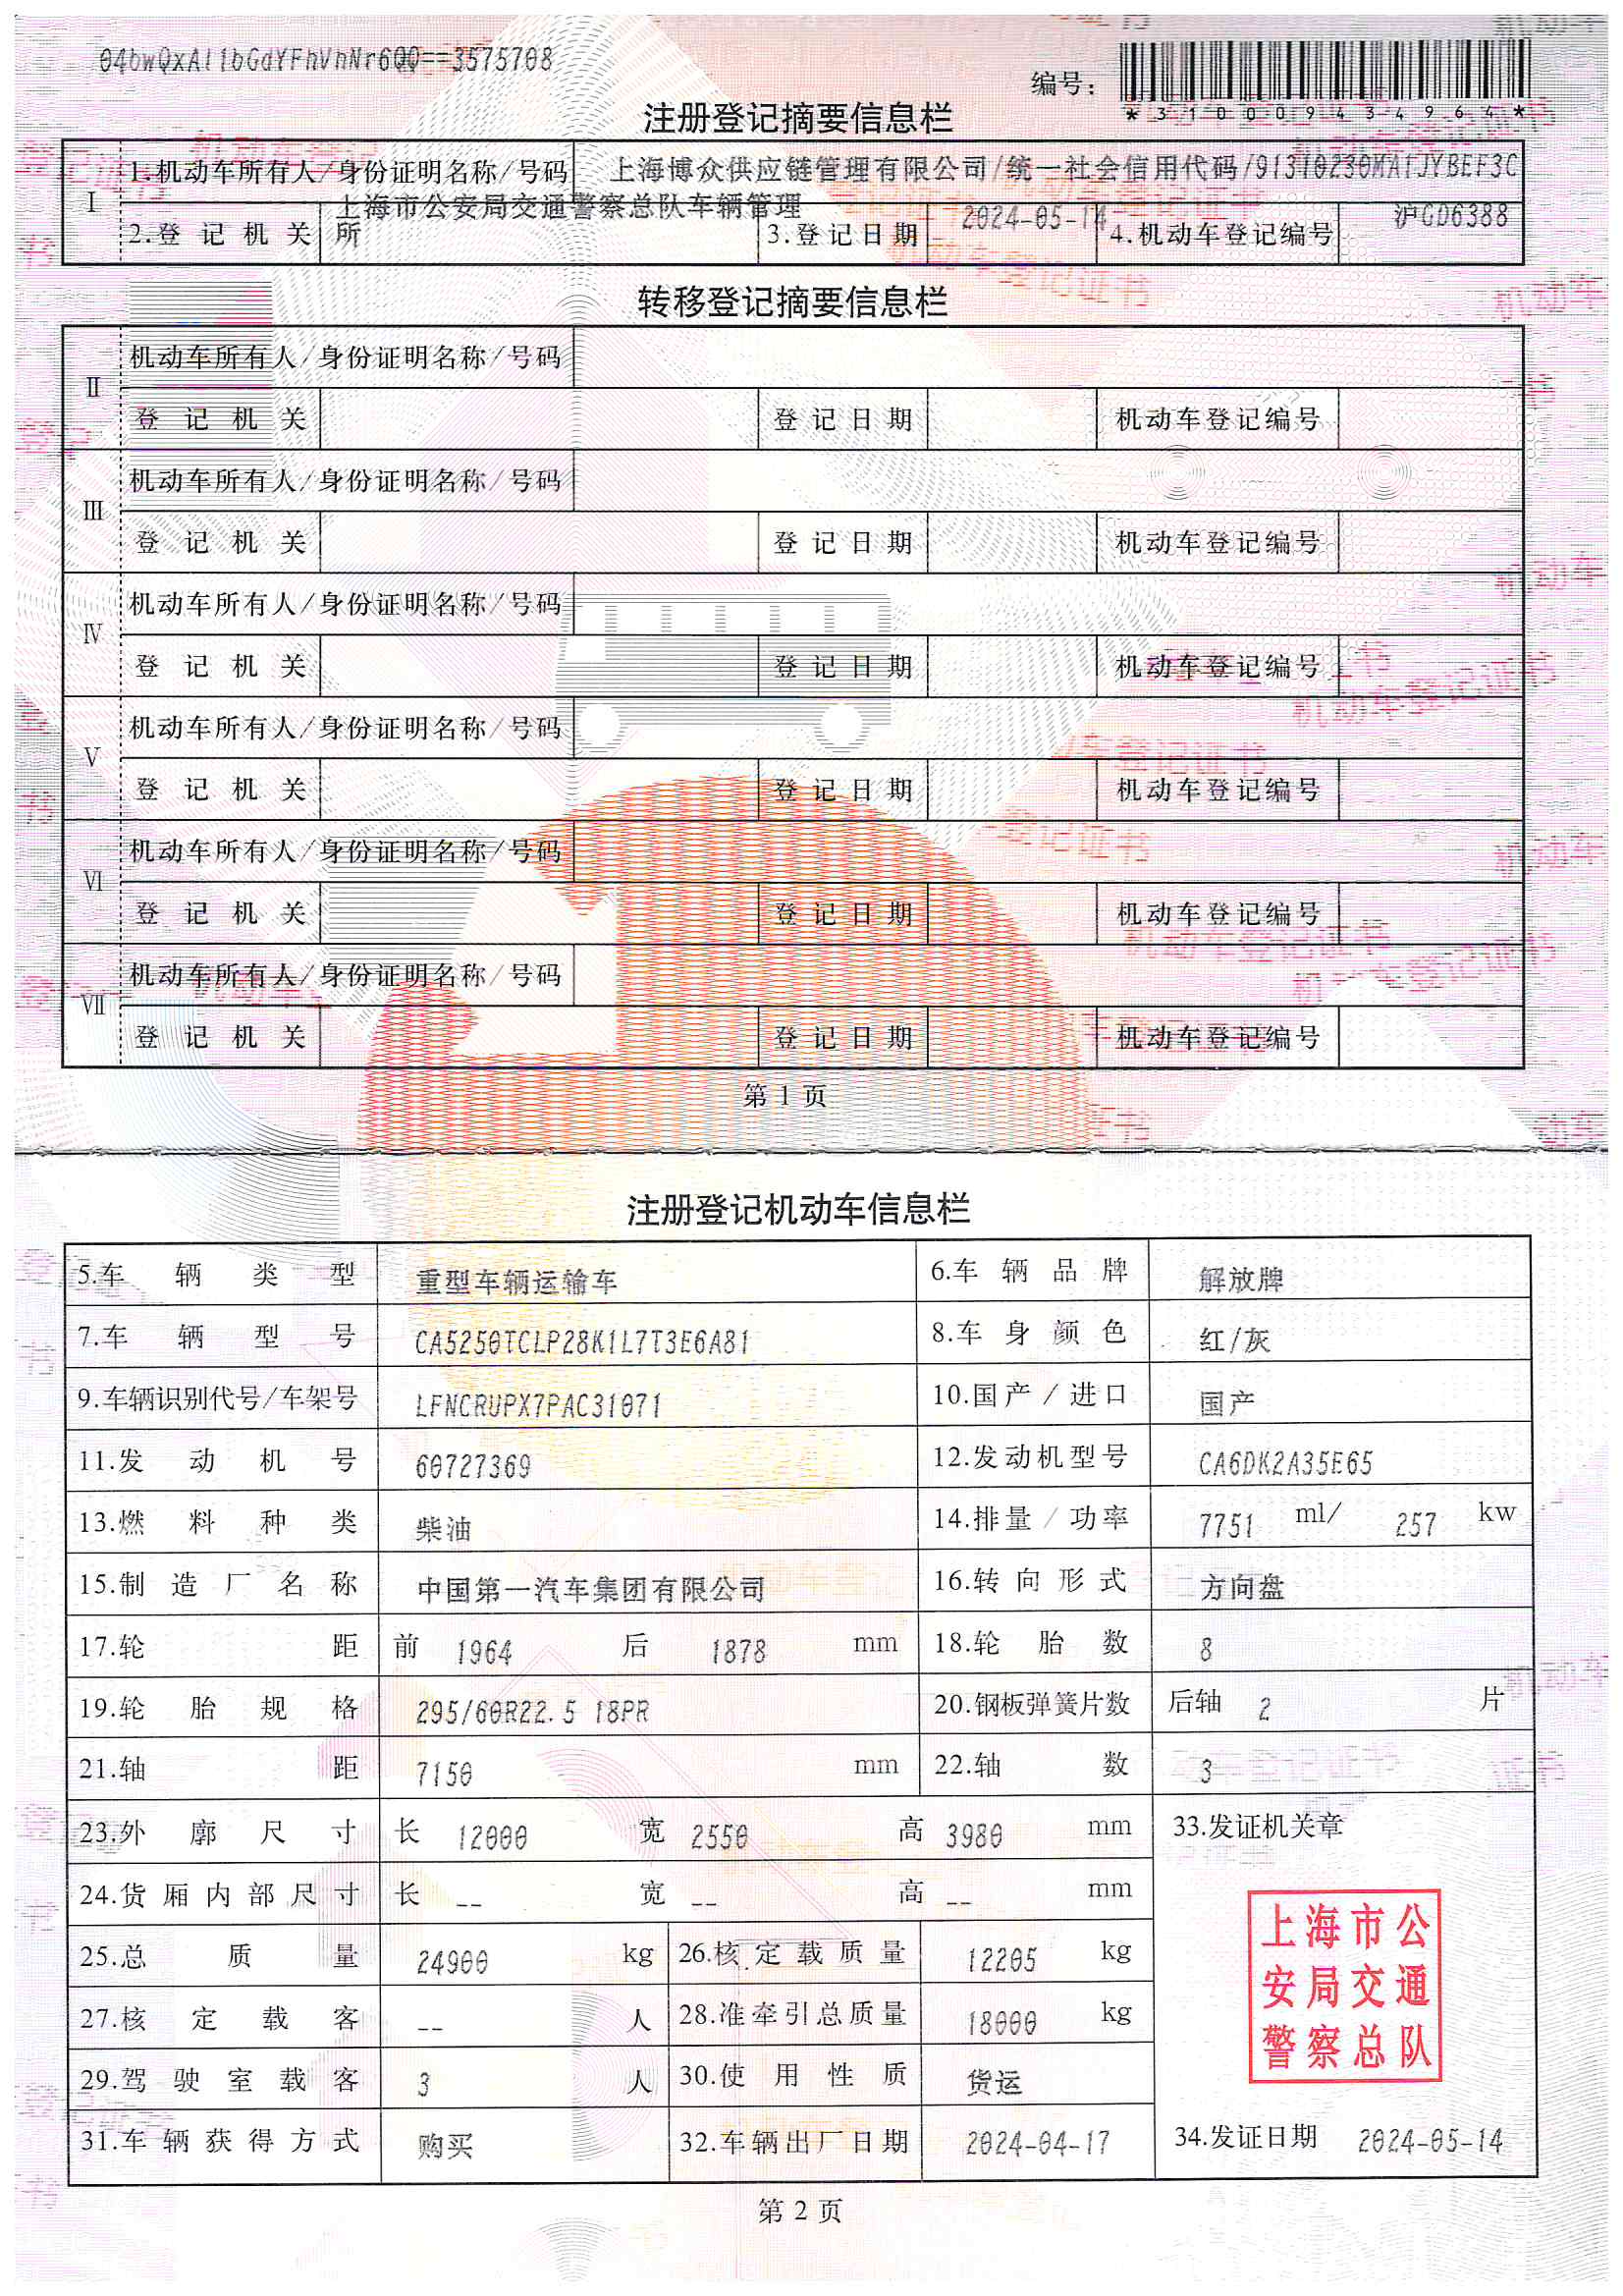 04bwQxAl1bGdYFhVhNr6QQ==3575708
编号：
*310009434964*
注册登记摘要信息栏
Ⅰ 1.机动车所有人/身份证明名称/号码 上海博众供应链管理有限公司/统一社会信用代码/91310230MA1JYBEF3C
2.登记机关 上海市公安局交通警察总队车辆管理所 3.登记日期 2024-05-14 4.机动车登记编号 沪GD6388
转移登记摘要信息栏
Ⅱ 机动车所有人/身份证明名称/号码
登记机关 登记日期 机动车登记编号
Ⅲ 机动车所有人/身份证明名称/号码
登记机关 登记日期 机动车登记编号
Ⅳ 机动车所有人/身份证明名称/号码
登记机关 登记日期 机动车登记编号
Ⅴ 机动车所有人/身份证明名称/号码
登记机关 登记日期 机动车登记编号
Ⅵ 机动车所有人/身份证明名称/号码
登记机关 登记日期 机动车登记编号
Ⅶ 机动车所有人/身份证明名称/号码
登记机关 登记日期 机动车登记编号
第 1 页
注册登记机动车信息栏
5.车辆类型 重型车辆运输车 6.车辆品牌 解放牌
7.车辆型号 CA5250TCLP28K1L7T3E6A81 8.车身颜色 红/灰
9.车辆识别代号/车架号 LFNCRUPX7PAC31071 10.国产/进口 国产
11.发动机号 60727369 12.发动机型号 CA6DK2A35E65
13.燃料种类 柴油 14.排量/功率 7751 ml/ 257 kw
15.制造厂名称 中国第一汽车集团有限公司 16.转向形式 方向盘
17.轮距 前 1964 后 1878 mm 18.轮胎数 8
19.轮胎规格 295/60R22.5 18PR 20.钢板弹簧片数 后轴 2 片
21.轴距 7150 mm 22.轴数 3
23.外廓尺寸 长 12000 宽 2550 高 3980 mm 33.发证机关章
24.货厢内部尺寸 长 -- 宽 -- 高 -- mm
25.总质量 24900 kg 26.核定载质量 12205 kg
27.核定载客 -- 人 28.准牵引总质量 18000 kg
29.驾驶室载客 3 人 30.使用性质 货运
上海市公
安局交通
警察总队
31.车辆获得方式 购买 32.车辆出厂日期 2024-04-17 34.发证日期 2024-05-14
第 2 页